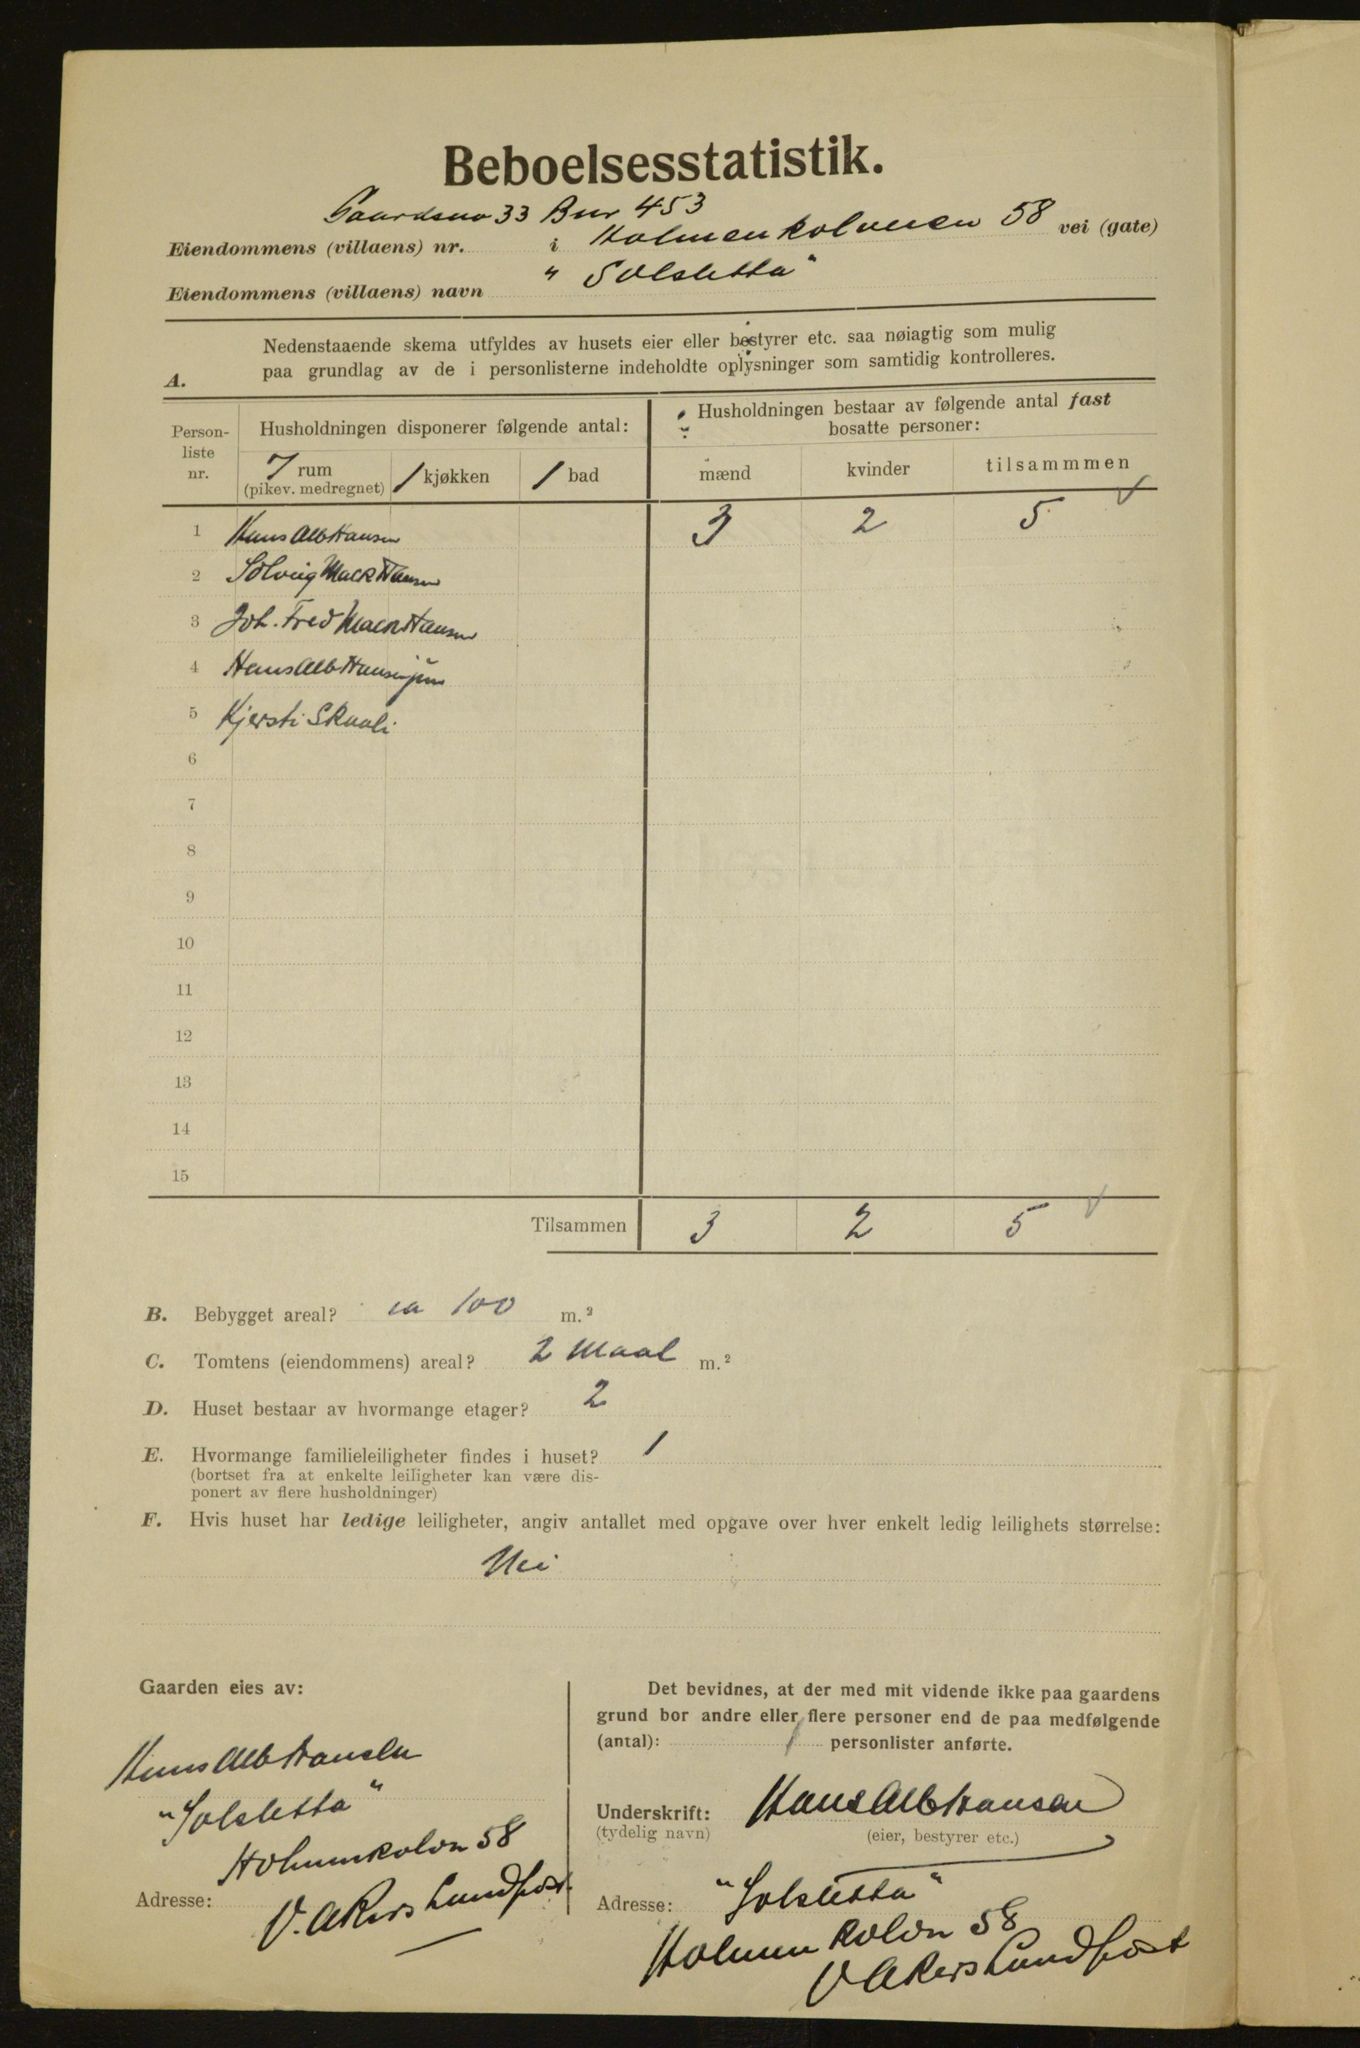 Beboelsesstatistik.
Gaardsno 33 Bnr 453
Eiendommens (villaens) nr. i Holmenkolveien 58 vei (gate)
Eiendommens (villaens) navn "Solsletta"
A. Nedenstaaende skema utfyldes av husets eier eller bestyrer etc. saa nøiagtig som mulig
paa grundlag av de i personlisterne indeholdte oplysninger som samtidig kontrolleres.
Person-
liste
nr.
Husholdningen disponerer følgende antal:
7 rum
(pikev. medregnet)
1 kjøkken
1 bad
Husholdningen bestaar av følgende antal fast
bosatte personer:
mænd kvinder tilsammmen
1 Hans Alb Hansen 3 2 5
2 Solveig Mack Hansen
3 Joh. Fred Mack Hansen
4 Hans Alb Hansen jun
5 Kjersti Skaali
6
7
8
9
10
11
12
13
14
15
Tilsammen 3 2 5
B. Bebygget areal? ca 100 m.²
C. Tomtens (eiendommens) areal? 2 Maal m.²
D. Huset bestaar av hvormange etager? 2
E. Hvormange familieleiligheter findes i huset? 1
(bortset fra at enkelte leiligheter kan være dis-
ponert av flere husholdninger)
F. Hvis huset har ledige leiligheter, angiv antallet med opgave over hver enkelt ledig leilighets størrelse:
Nei
Gaarden eies av:
Hans Alb Hansen
"Solsletta"
Holmenkolvn 58
Adresse: V. Akers Landpost.
Det bevidnes, at der med mit vidende ikke paa gaardens
grund bor andre eller flere personer end de paa medfølgende
(antal): 1 personlister anførte.
Underskrift: Hans Alb Hansen
(tydelig navn) (eier, bestyrer etc.)
Adresse: "Solsletta"
Holmenkolvn 58
V Akers Landpost